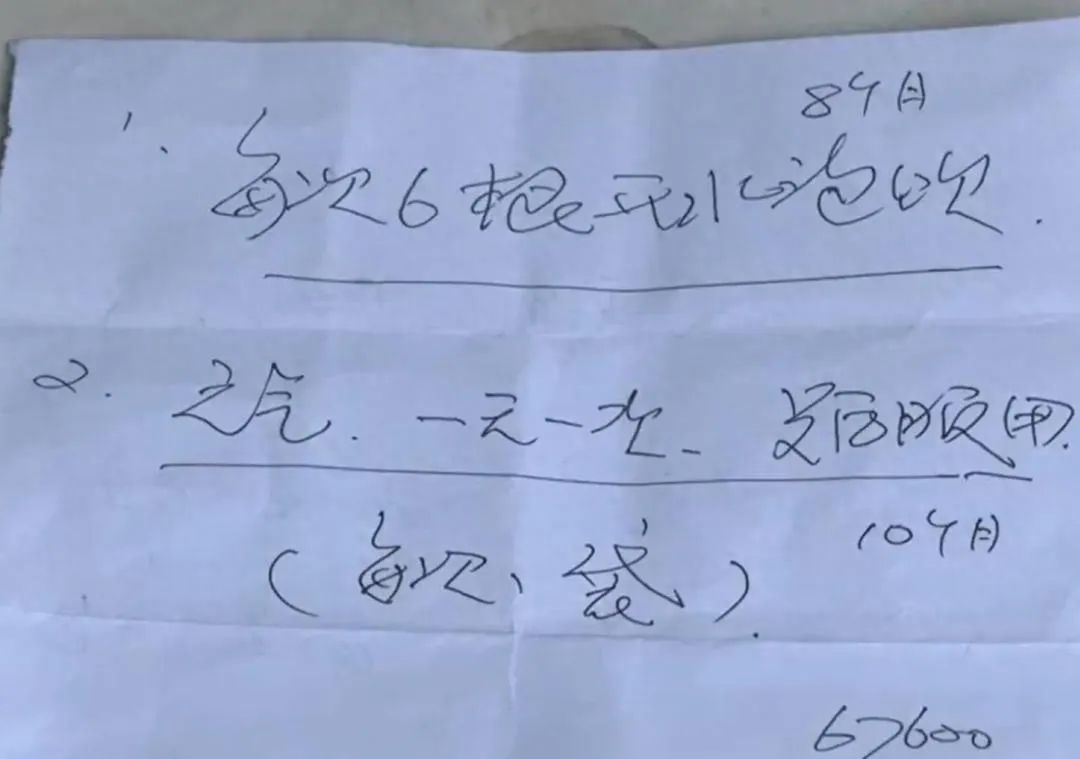 8个月
1. 每次6根开水泡饮.
2. 元气. 一天一次. 早后服用.
10个月
(每次1袋).
67600